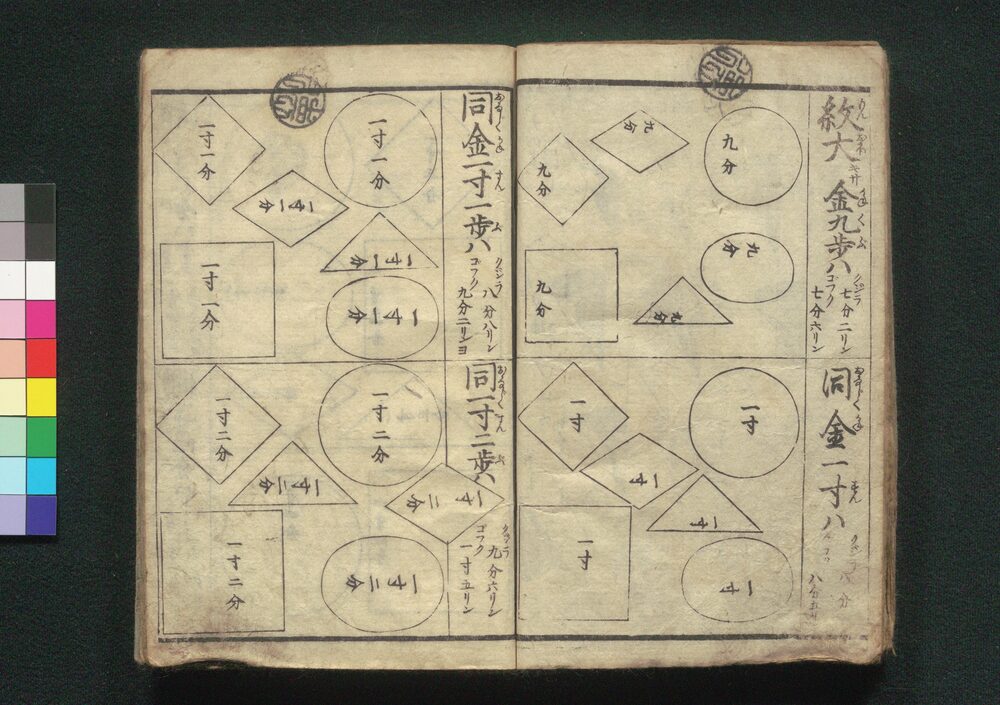 紋大 金九歩ハ
クジラ 七分二リン
ゴフク 七分六リン
九分
九分
九分
九分
九分
九分
同金一寸ハ
クジラ 八分
一寸
一寸
一寸
一寸
一寸
一寸
同金一寸一歩ハ
クジラ 八分八リン
ゴフク 九分二リンヨ
一寸一分
一寸一分
一寸一分
一寸一分
一寸一分
一寸一分
同一寸二歩ハ
クジラ 九分六リン
ゴフク 一寸五リン
一寸二分
一寸二分
一寸二分
一寸二分
一寸二分
一寸二分